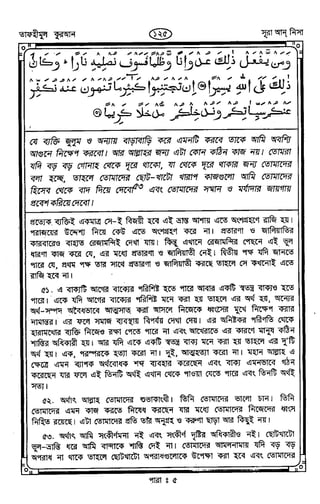 তাফহীমুল কুরআন
১২৫
সূরা আন্ নিসা
وَمَنْ يَّفْعَلْ ذٰلِكَ عُدْوَانًا وَّظُلْمًا فَسَوْفَ نُصْلِيْهِ نَارًا ؕ وَكَانَ
ذٰلِكَ عَلَى اللّٰهِ يَسِيْرًا ۞ اِنْ تَجْتَنِبُوْا كَبَآئِرَ مَا تُنْهَوْنَ عَنْهُ نُكَفِّرْ
عَنْكُمْ سَيِّاٰتِكُمْ وَنُدْخِلْكُمْ مُّدْخَلًا كَرِيْمًا ۞
যে ব্যক্তি জুলুম ও অন্যায় বাড়াবাড়ি করে এমনটি করবে তাকে আমি অবশ্যি
আগুনে নিক্ষেপ করবো। আর আল্লাহর জন্য এটা কোন কঠিন কাজ নয়। তোমরা
যদি বড় বড় গোনাহ থেকে দূরে থাকো, যা থেকে দূরে থাকার জন্য তোমাদের
বলা হচ্ছে, তাহলে তোমাদের ছোট-খাটো খারাপ কাজগুলো আমি তোমাদের
হিসেব থেকে বাদ দিয়ে দেবো৫৩ এবং তোমাদের সম্মান ও মর্যাদার জায়গায়
প্রবেশ করিয়ে দেবো।
প্রত্যেক ব্যক্তিই একমাত্র সে-ই বিজয়ী হবে এই ভ্রান্ত আশায় এতে অংশগ্রহণে রাজি হয়।
পরাজয়ের উদ্দেশ্য নিয়ে কেউ এতে অংশগ্রহণ করে না। প্রতারণা ও জালিয়াতির
কারবারেও বাহ্যত রেজামন্দির দেখা যায়। কিন্তু এখানে রেজামন্দির পেছনে এই ভুল
ধারণা কাজ করে যে, এর মধ্যে প্রতারণা ও জালিয়াতী নেই। দ্বিতীয় পক্ষ যদি জানতে
পারে যে, প্রথম পক্ষ তার সাথে প্রতারণা ও জালিয়াতী করছে তাহলে সে কখনোই এতে
রাজি হবে না।
৫১. এ বাক্যটি আগের বাক্যের পরিশিষ্ট হতে পারে আবার একটি স্বতন্ত্র বাক্যও হতে
পারে। একে যদি আগের বাক্যের পরিশিষ্ট মনে করা হয় তাহলে এর অর্থ হয়, অন্যের
অর্থ-সম্পদ অবৈধভাবে আত্মসাত করা আসলে নিজেকে ধ্বংসের মুখে নিক্ষেপ করার
নামান্তর। এর ফলে সমাজ ব্যবস্থায় বিপর্যয় দেখা দেয়। এর অনিষ্টকর পরিণতি থেকে
হারামখোর ব্যক্তি নিজেও রক্ষা পেতে পারে না এবং আখেরাতে এর কারণে মানুষ কঠিন
শাস্তির অধিকারী হয়। আর যদি একে একটি স্বতন্ত্র বাক্য মনে করা হয় তাহলে এর দু'টি
অর্থ হয়। এক, পরস্পরকে হত্যা করো না। দুই, আত্মহত্যা করো না। মহান আল্লাহ এ
ক্ষেত্রে এমন ব্যাপক অর্থবোধক শব্দ ব্যবহার করেছেন এবং বাক্য এমনভাবে গঠন
করেছেন যার ফলে এই তিনটি অর্থই এখান থেকে পাওয়া যেতে পারে এবং তিনটি অর্থই
সত্য।
৫২. অর্থাৎ আল্লাহ তোমাদের শুভাকাংখী। তিনি তোমাদের ভালো চান। তিনি
তোমাদের এমন কাজ করতে নিষেধ করছেন যার মধ্যে তোমাদের নিজেদের ধ্বংস
নিহিত রয়েছে। এটা তোমাদের প্রতি তাঁর অনুগ্রহ ও করুণা ছাড়া আর কিছুই নয়।
৫৩. অর্থাৎ আমি সংকীর্ণমনা নই এবং সংকীর্ণ দৃষ্টির অধিকারীও নই। ছোটখাটো
ভুল-ভ্রান্তি ধরে আমি বান্দাকে শাস্তি দেই না। তোমাদের আমলনামায় যদি বড় বড়
অপরাধ না থাকে তাহলে ছোটখাটো অপরাধগুলোকে উপেক্ষা করা হবে এবং তোমাদের
পারা : ৫